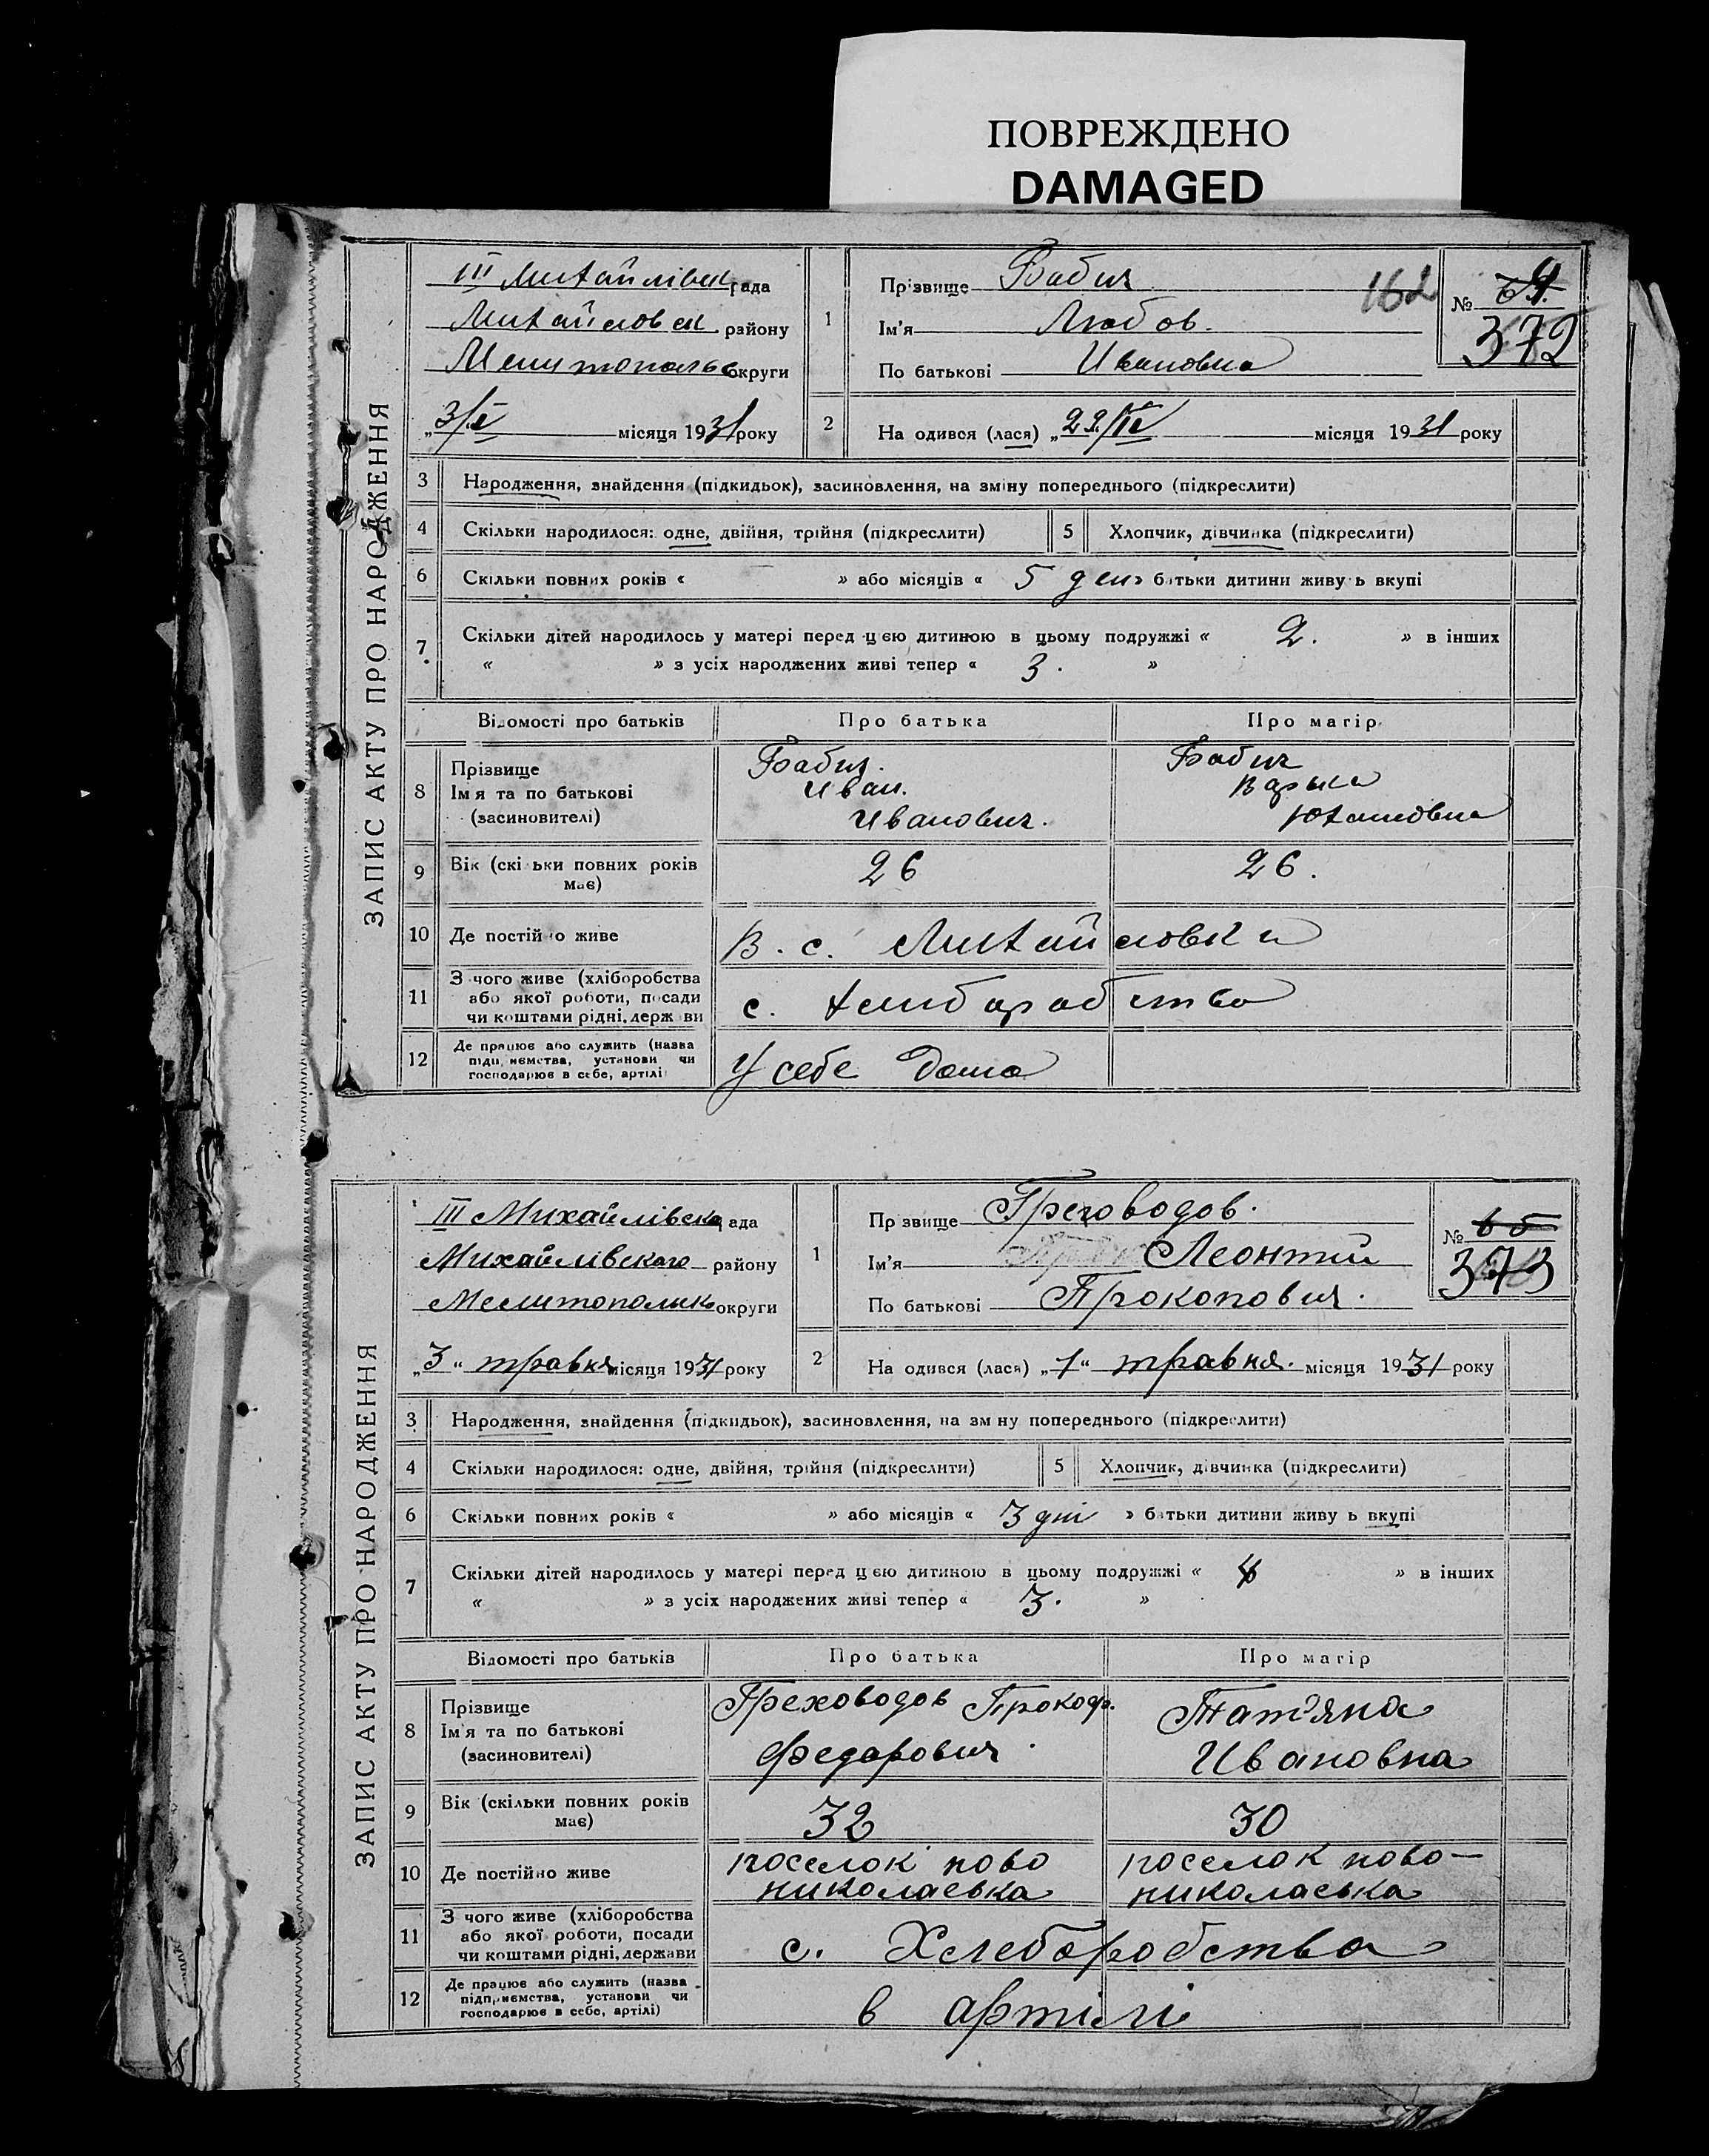 ПОВРЕЖДЕНО
DAMAGED
ЗАПИС АКТУ ПРО НАРОДЖЕННЯ
III Михайлівськ рада
Михайловск району
Мелитопольс округи
„3/V місяця 1931 року
1
Прізвище Бабич
Ім'я Любов.
По батькові Ивановна
162
№ 64.
372
2
На одився (лася) „29/IV місяця 1931 року
3 Народження, знайдення (підкидьок), засиновлення, на зміну попереднього (підкреслити)
4 Скільки народилося: одне, двійня, трійня (підкреслити) 5 Хлопчик, дівчинка (підкреслити)
6 Скільки повних років « — » або місяців « 5 ден батьки дитини живу ь вкупі
7 Скільки дітей народилось у матері перед цею дитиною в цьому подружжі « 2. » в інших
« » з усіх народжених живі тепер « 3. »
Відомості про батьків Про батька Про матір
8 Прізвище
Ім я та по батькові
(засиновителі)
Бабич.
Иван.
Иванович.
Бабич
9 Вік (скі ьки повних років
має)
26 26.
10 Де постій о живе В. с. Михайловка
11 З чого живе (хліборобства
або якої роботи, посади
чи коштами рідні, держ ви
с. хлиборобство
12 Де працює або служить (назва
підп иємства, установи чи
господарює в себе, артілі
У себе дома
ЗАПИС АКТУ ПРО НАРОДЖЕННЯ
III Михайлівська рада
Михайлівского району
Мелитопольск округи
„3“ травня місяця 1931 року
1
Пр звище Греховодов.
Ім'я Леонтий
По батькові Прокопович.
№ 65
373
2
На одився (лася) „1“ травня. місяця 1931 року
3 Народження, знайдення (підкидьок), засиновлення, на зм ну попереднього (підкреслити)
4 Скільки народилося: одне, двійня, трійня (підкреслити) 5 Хлопчик, дівчинка (підкреслити)
6 Скільки повних років « » або місяців « 3 дні » батьки дитини живу ь вкупі
7 Скільки дітей народилось у матері перед цею дитиною в цьому подружжі « 4 » в інших
« » з усіх народжених живі тепер « 3. »
Відомості про батьків Про батька Про матір
8 Прізвище
Ім'я та по батькові
(засиновителі)
Греховодов Прокоф.
Федорович.
Тат'яна
Ивановна
9 Вік (скільки повних років
має)
32 30
10 Де постійно живе
поселок ново
николаевка
поселок ново-
николаевка
11 З чого живе (хліборобства
або якої роботи, посади
чи коштами рідні, держави
с. Хлеборобства
12 Де працює або служить (назва
підприємства, установи чи
господарює в себе, артілі)
в артілі